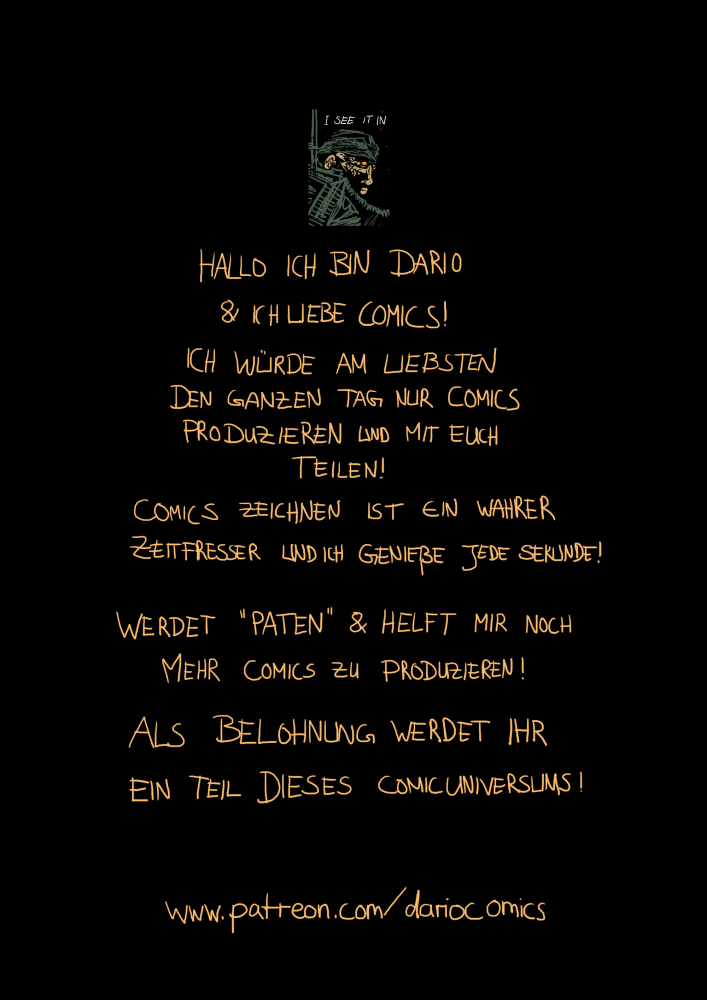 I SEE IT IN
HALLO ICH BIN DARIO
& ICH LIEBE COMICS!
ICH WÜRDE AM LIEBSTEN
DEN GANZEN TAG NUR COMICS
PRODUZIEREN UND MIT EUCH
TEILEN!
COMICS ZEICHNEN IST EIN WAHRER
ZEITFRESSER UND ICH GENIEßE JEDE SEKUNDE!
WERDET "PATEN" & HELFT MIR NOCH
MEHR COMICS ZU PRODUZIEREN!
ALS BELOHNUNG WERDET IHR
EIN TEIL DIESES COMICUNIVERSUMS!
www.patreon.com/dariocomics